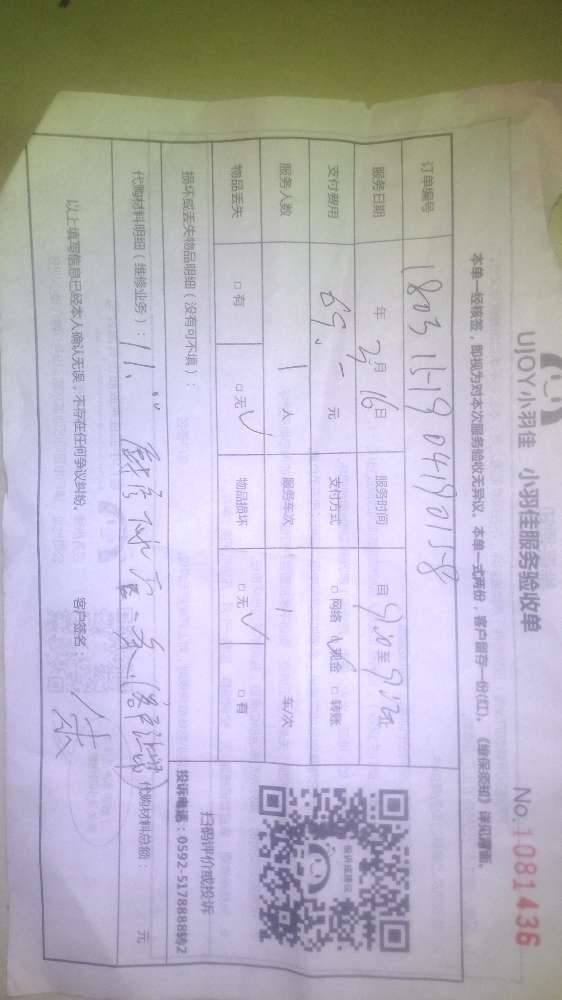 UJOY小羽佳 小羽佳服务验收单 No.1081436
本单一经核签，即视为对本次服务验收无异议。本单一式两份，客户留存一份(红)。《维保须知》详见背面。
订单编号 180311-1904190158
服务日期 年 月16日 服务时间 自9:00至
支付费用 69.- 元 支付方式 □网络 □现金 □转账
服务人数 1人 服务车次 1 车/次
物品丢失 □有 □无√ 物品损坏 □无√ □有
损坏或丢失物品明细（没有可不填）：
代购材料明细（维修业务）： 代购材料总额： 元
以上填写信息已经本人确认无误，不存在任何争议纠纷。 客户签名：
投诉或建议
扫码评价或投诉
投诉电话：0592 5178888转2